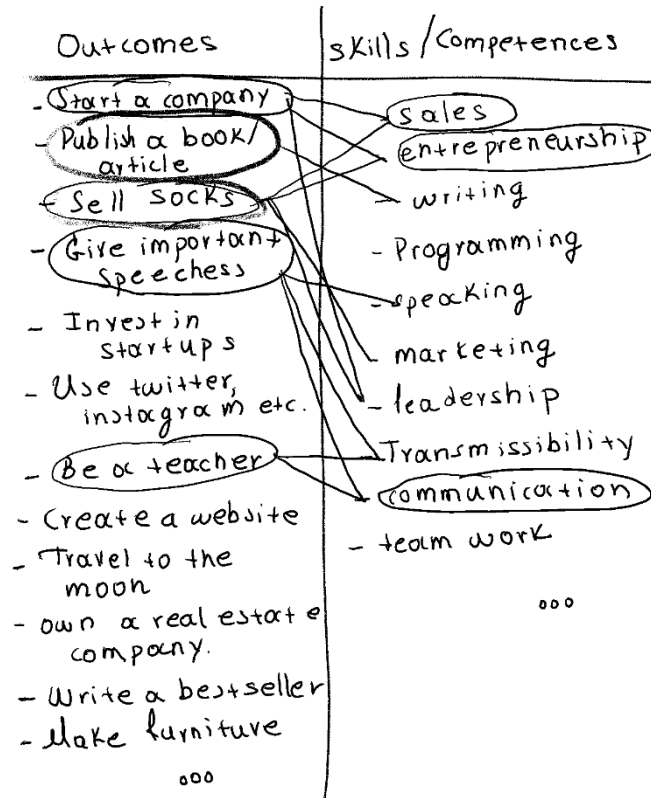 Outcomes
- Start a company
- Publish a book/
article
- Sell socks
- Give important
Speechess
- Invest in
startups
- Use twitter,
instagram etc.
- Be a teacher
- Create a website
- Travel to the
moon
- own a real estate
company.
- Write a bestseller
- Make furniture
ooo
skills/Competences
sales
entrepreneurship
- writing
- Programming
- speaking
- marketing
- leadership
- Transmissibility
- communication
- team work
ooo